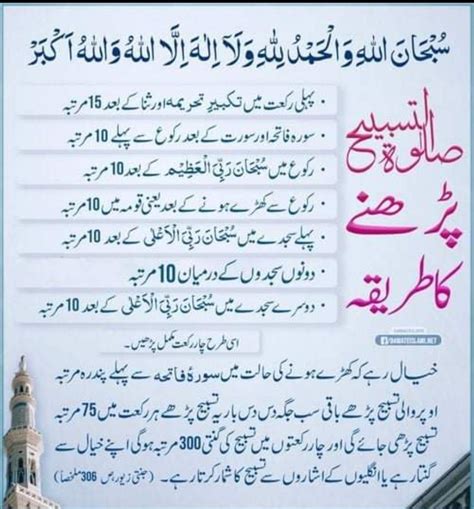 سُبْحَانَ اللهِ وَالْحَمْدُ لِلّٰهِ وَلَآ اِلٰهَ اِلَّا اللهُ وَاللهُ اَكْبَرْ
صلوٰۃ التسبیح
پڑھنے
کا طریقہ
• پہلی رکعت میں تکبیرِ تحریمہ اور ثنا کے بعد 15 مرتبہ
• سورہ فاتحہ اور سورت کے بعد رکوع سے پہلے 10 مرتبہ
• رکوع میں سُبْحَانَ رَبِّيَ الْعَظِيْمِ کے بعد 10 مرتبہ
• رکوع سے کھڑے ہونے کے بعد یعنی قومہ میں 10 مرتبہ
• پہلے سجدے میں سُبْحَانَ رَبِّيَ الْاَعْلٰى کے بعد 10 مرتبہ
• دونوں سجدوں کے درمیان 10 مرتبہ
• دوسرے سجدے میں سُبْحَانَ رَبِّيَ الْاَعْلٰى کے بعد 10 مرتبہ
اسی طرح چار رکعت مکمل پڑھیں۔
/DAWATEISLAMI.NET
خیال رہے کہ کھڑے ہونے کی حالت میں سورۂ فاتحہ سے پہلے پندرہ مرتبہ
اوپر والی تسبیح پڑھے باقی سب جگہ دس دس بار یہ تسبیح پڑھے ہر رکعت میں 75 مرتبہ
تسبیح پڑھی جائے گی اور چار رکعتوں میں تسبیح کی گنتی 300 مرتبہ ہوگی اپنے خیال سے
گنتا رہے یا انگلیوں کے اشاروں سے تسبیح کا شمار کرتا رہے۔ (جنتی زیور، ص 306 ملخصاً)